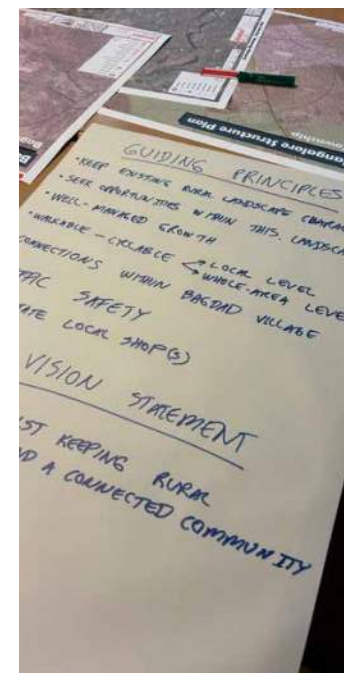 angalore Structure Plan
ownship
GUIDING PRINCIPLES
• KEEP EXISTING RURAL LANDSCAPE CHARAC
• SEEK OPPORTUNITIES WITHIN THIS LANDSCA
• WELL-MANAGED GROWTH
• WALKABLE - CYCLABLE LOCAL LEVEL
WHOLE-AREA LEVE
CONNECTIONS WITHIN BAGDAD VILLAGE
FIC SAFETY
TATE LOCAL SHOP(S)
VISION STATEMENT
ST KEEPING RURAL
ND A CONNECTED COMMUNITY